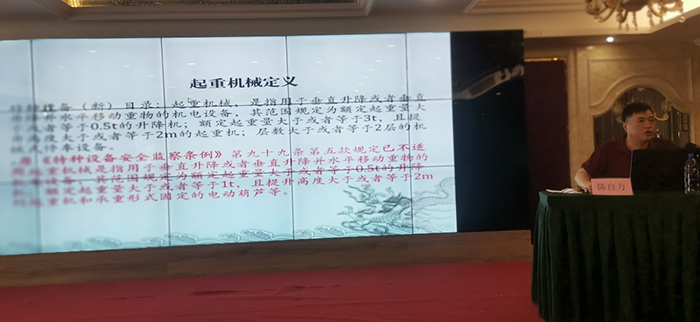 起重机械定义
特种设备（新）目录：起重机械，是指用于垂直升降或者垂直
升降并水平移动重物的机电设备，其范围规定为额定起重量大
于或者等于0.5t的升降机；额定起重量大于或者等于3t，且提
升高度大于或者等于2m的起重机；层数大于或者等于2层的机
械式停车设备。
《特种设备安全监察条例》第九十九条第五款规定已不适
起重机械是指用于垂直升降或者垂直升降并水平移动重物的
机电设备，其范围规定为额定起重量大于或者等于0.5t的升降
额定起重量大于或者等于1t，且提升高度大于或者等于2m
的起重机和承重形式固定的电动葫芦等。
陈自力